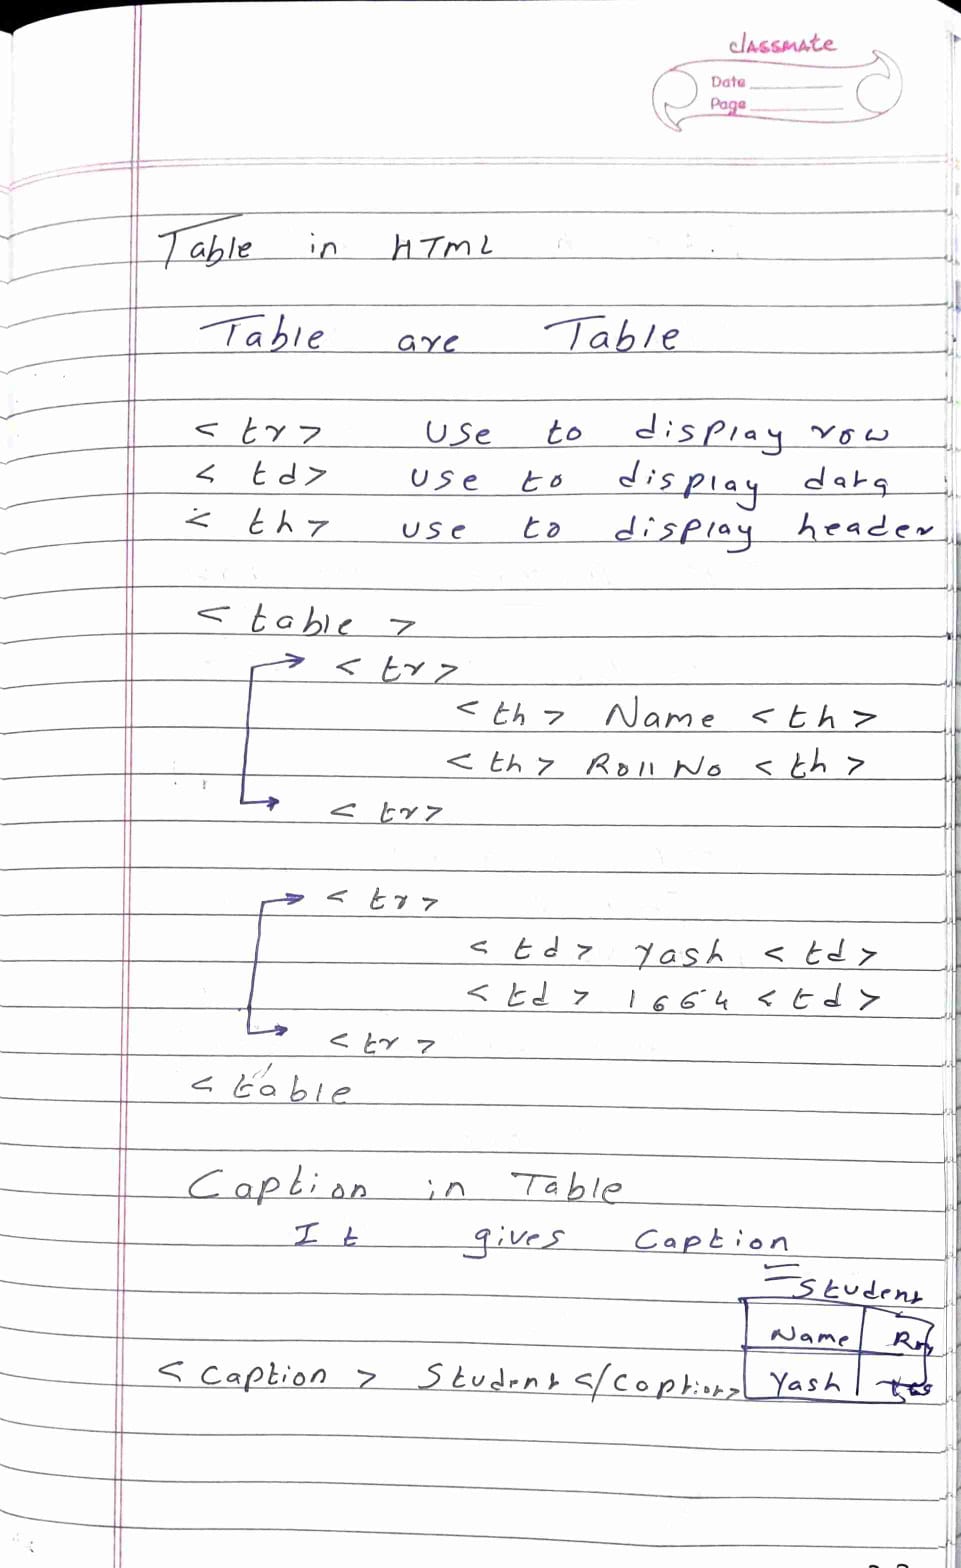 classmate
Date
Page
Table in HTML
Table are Table
<tr> use to display row
<td> use to display data
<th> use to display header
<table>
<tr>
<th> Name <th>
<th> Roll No <th>
<tr>
<tr>
<td> Yash <td>
<td> 1664 <td>
<tr>
<table
Caption in Table
It gives Caption
Student
Name
<Caption> Student </Caption>
Yash